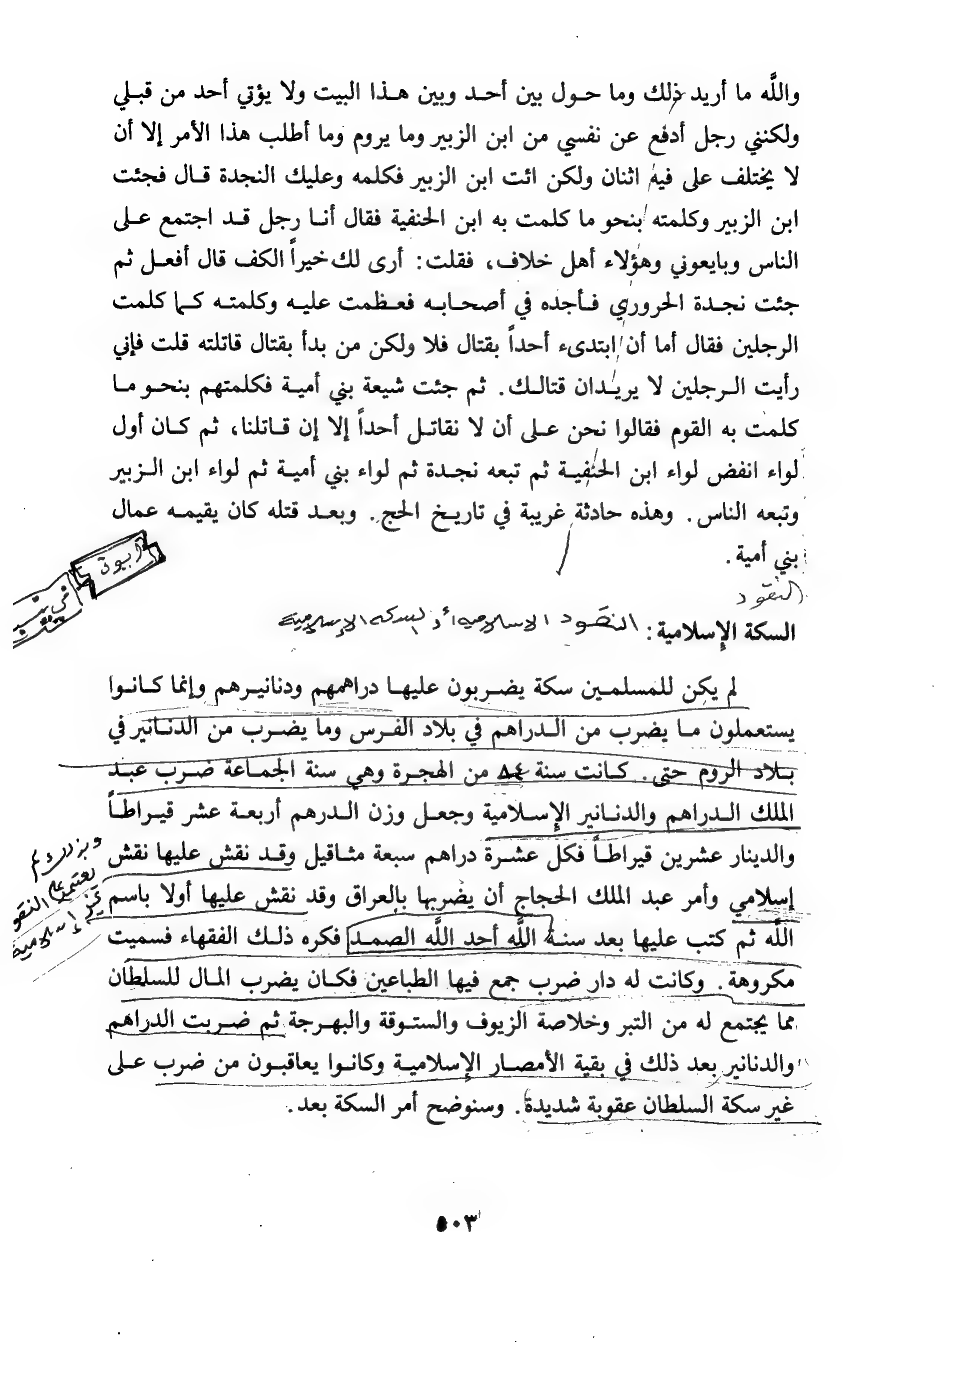 واللَّه ما أريد ذلك وما حول بين أحد وبين هذا البيت ولا يؤتي أحد من قبلي
ولكنني رجل أدفع عن نفسي من ابن الزبير وما يروم وما أطلب هذا الأمر إلا أن
لا يختلف على فيه اثنان ولكن ائت ابن الزبير فكلمه وعليك النجدة قال فجئت
ابن الزبير وكلمته بنحو ما كلمت به ابن الحنفية فقال أنا رجل قد اجتمع على
الناس وبايعوني وهؤلاء أهل خلاف، فقلت: أرى لك خيراً الكف قال أفعل ثم
جئت نجدة الحروري فأجده في أصحابه فعظمت عليه وكلمته كما كلمت
الرجلين فقال أما أن ابتدىء أحداً بقتال فلا ولكن من بدأ بقتال قاتلته قلت فإني
رأيت الرجلين لا يريدان قتالك. ثم جئت شيعة بني أمية فكلمتهم بنحو ما
كلمت به القوم فقالوا نحن على أن لا نقاتل أحداً إلا إن قاتلنا، ثم كان أول
لواء انفض لواء ابن الحنفية ثم تبعه نجدة ثم لواء بني أمية ثم لواء ابن الزبير
وتبعه الناس. وهذه حادثة غريبة في تاريخ الحج. وبعد قتله كان يقيمه عمال
بني أمية.
النقود
السكة الإسلامية: النقود الإسلامية أو السكه الإسلامية
لم يكن للمسلمين سكة يضربون عليها دراهمهم ودنانيرهم وإنما كانوا
يستعملون ما يضرب من الدراهم في بلاد الفرس وما يضرب من الدنانير في
بلاد الروم حتى. كانت سنة ٨٤ من الهجرة وهي سنة الجماعة ضرب عبد
الملك الدراهم والدنانير الإسلامية وجعل وزن الدرهم أربعة عشر قيراطاً
والدينار عشرين قيراطاً فكل عشرة دراهم سبعة مثاقيل وقد نقش عليها نقش
إسلامي وأمر عبد الملك الحجاج أن يضربها بالعراق وقد نقش عليها أولا باسم
اللَّه ثم كتب عليها بعد سنة اللَّه أحد اللَّه الصمد فكره ذلك الفقهاء فسميت
مكروهة. وكانت له دار ضرب جمع فيها الطباعين فكان يضرب المال للسلطان
مما يجتمع له من التبر وخلاصة الزيوف والستوقة والبهرجة ثم ضربت الدراهم
والدنانير بعد ذلك في بقية الأمصار الإسلامية وكانوا يعاقبون من ضرب على
غير سكة السلطان عقوبة شديدة. وسنوضح أمر السكة بعد.
٥٠٣